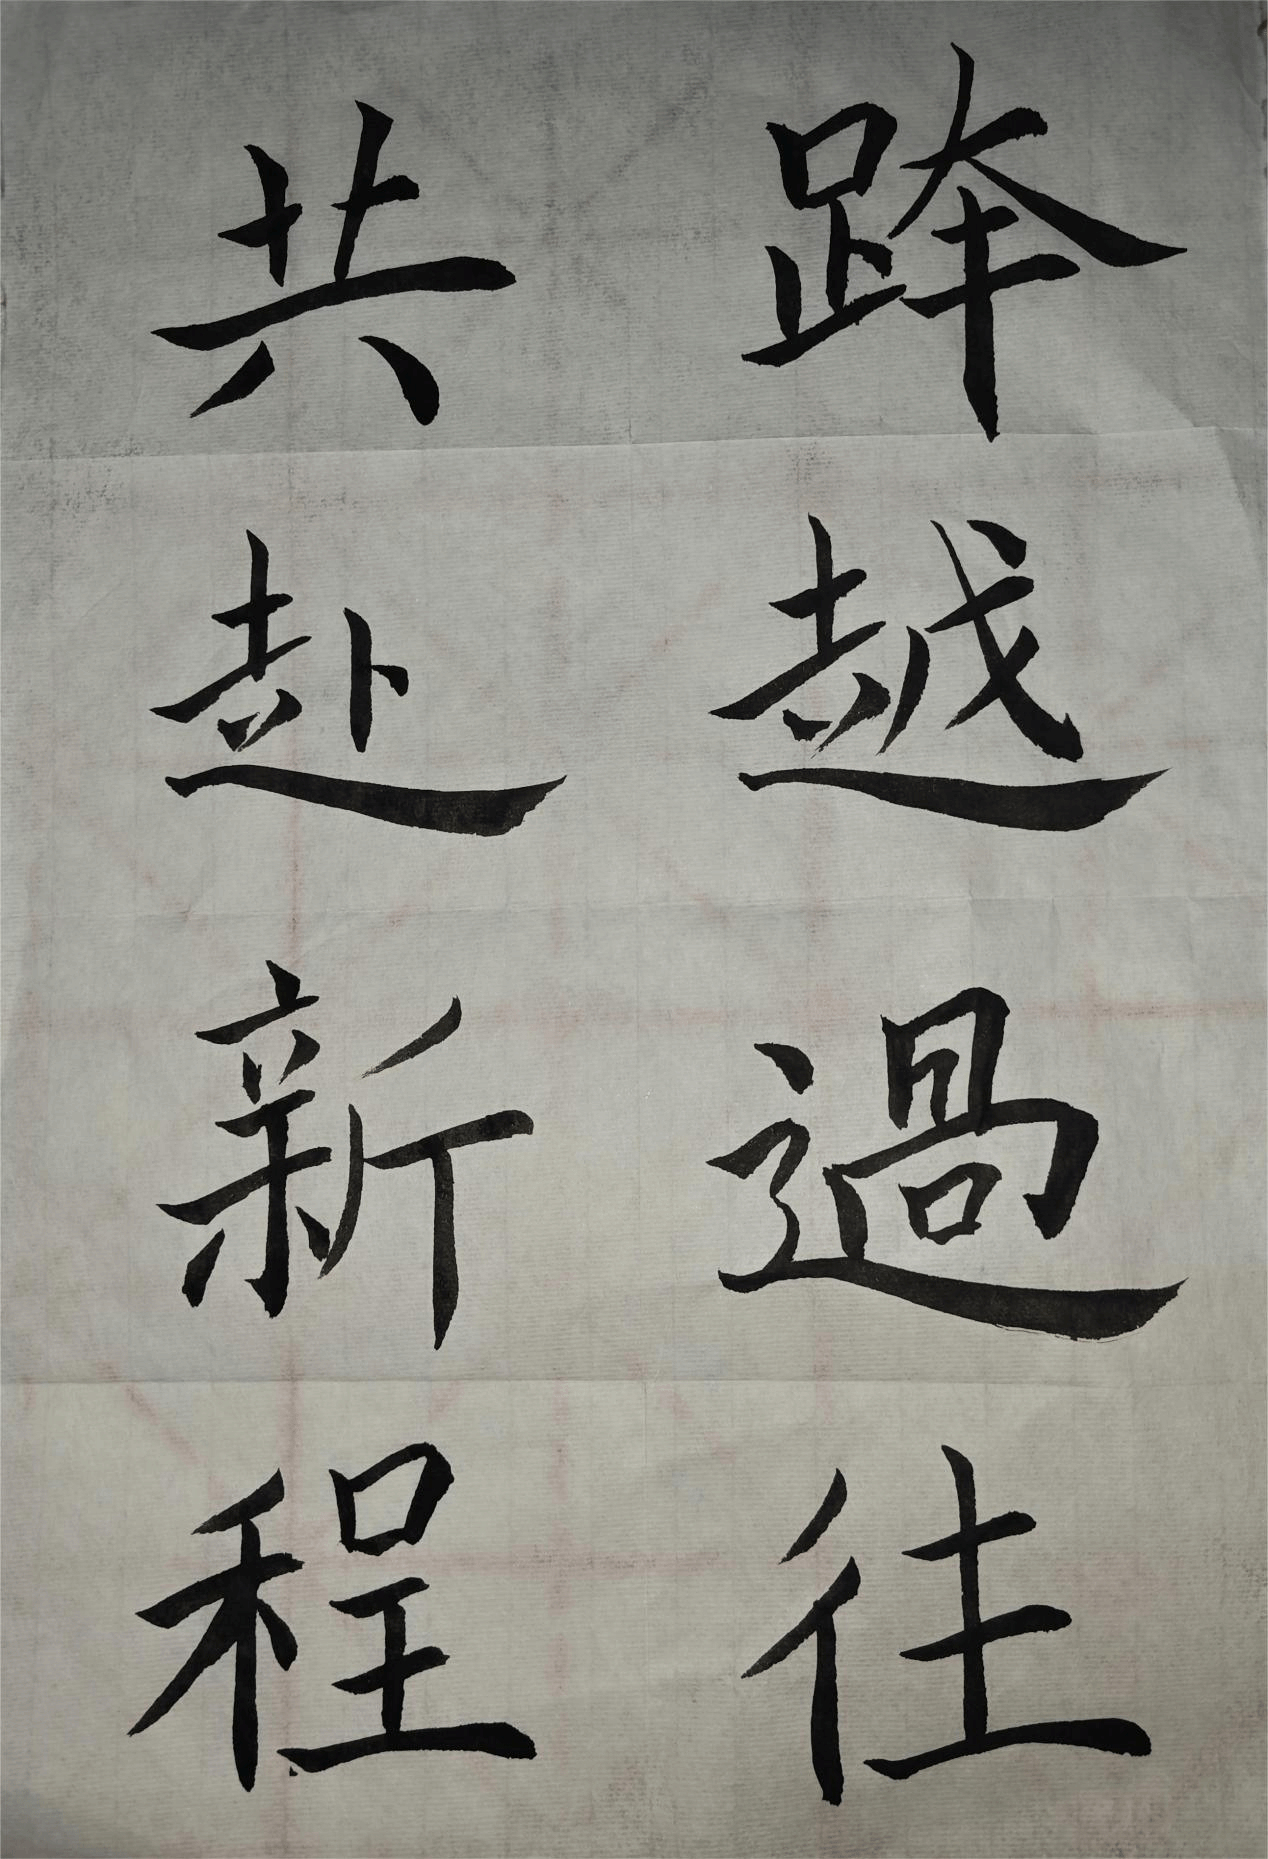 跨越過往
共赴新程